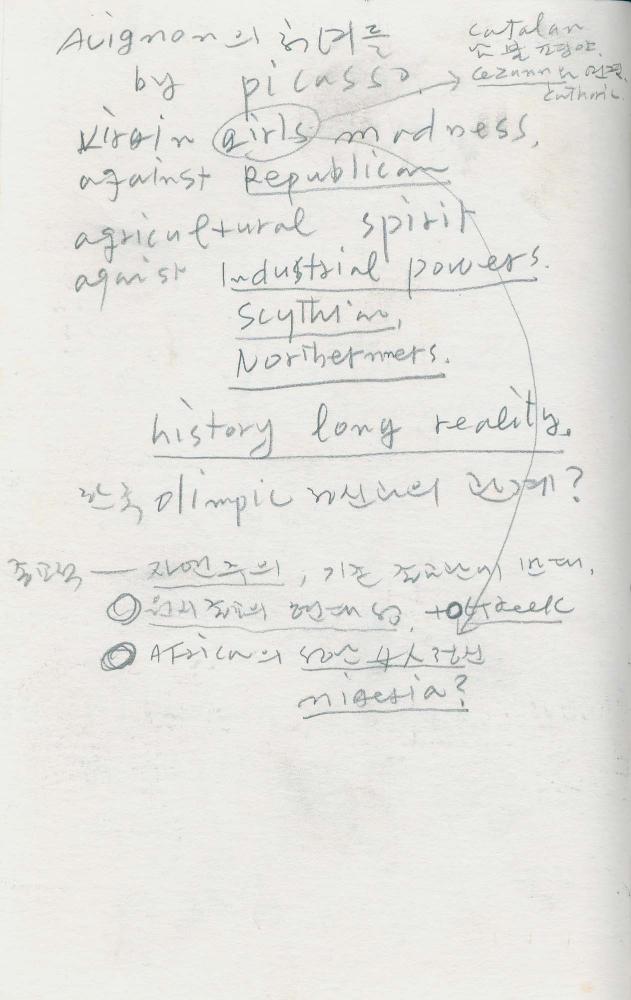 Avignon의 처녀들
by picasso.
Catalan
Cezanne
Catholic.
virgin girls madness,
against Republican
agricultural spirit
against Industrial powers.
Scythian,
Northerners.
history long reality.
한국 olimpic 의 관계?
종교성 — 자연주의, 기존 종교관에 반대,
원시 종교의 현대성,
Africa의
nigeria?